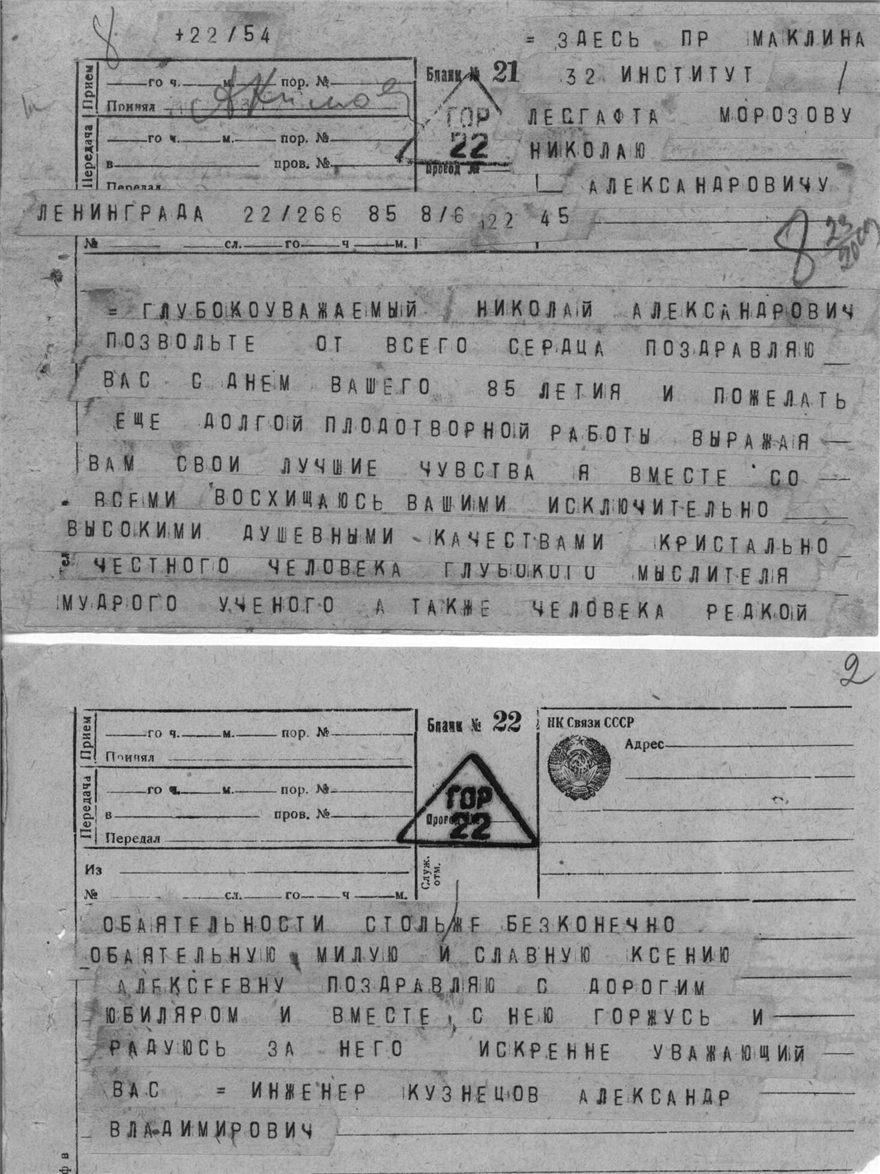 +22/54
= ЗДЕСЬ ПР МАКЛИНА
32 ИНСТИТУТ
ЛЕСГАФТА МОРОЗОВУ
НИКОЛАЮ
АЛЕКСАНДРОВИЧУ
Прием
го ч. м. пор. №
Принял
Передача
го ч. м. пор. №
в пров. №
Передал
Бланк № 21
ГОР
22
Провод №
ЛЕНИНГРАДА 22/266 85 8/6 22 45
№ сл. го ч м.
8 23
= ГЛУБОКОУВАЖАЕМЫЙ НИКОЛАЙ АЛЕКСАНДРОВИЧ
ПОЗВОЛЬТЕ ОТ ВСЕГО СЕРДЦА ПОЗДРАВЛЯЮ
ВАС С ДНЕМ ВАШЕГО 85 ЛЕТИЯ И ПОЖЕЛАТЬ
ЕЩЕ ДОЛГОЙ ПЛОДОТВОРНОЙ РАБОТЫ ВЫРАЖАЯ
ВАМ СВОИ ЛУЧШИЕ ЧУВСТВА Я ВМЕСТЕ СО
ВСЕМИ ВОСХИЩАЮСЬ ВАШИМИ ИСКЛЮЧИТЕЛЬНО
ВЫСОКИМИ ДУШЕВНЫМИ КАЧЕСТВАМИ КРИСТАЛЬНО
ЧЕСТНОГО ЧЕЛОВЕКА ГЛУБОКОГО МЫСЛИТЕЛЯ
МУДРОГО УЧЕНОГО А ТАКЖЕ ЧЕЛОВЕКА РЕДКОЙ
2
Прием
го ч. м. пор. №
Принял
Передача
го ч. м. пор. №
в пров. №
Передал
Из
№ сл. го ч м.
Бланк № 22
ГОР
Провод №
22
Служ. отм.
НК Связи СССР
Адрес
ОБАЯТЕЛЬНОСТИ СТОЛЬЖЕ БЕЗКОНЕЧНО
ОБАЯТЕЛЬНУЮ МИЛУЮ И СЛАВНУЮ КСЕНИЮ
АЛЕКСЕЕВНУ ПОЗДРАВЛЯЮ С ДОРОГИМ
ЮБИЛЯРОМ И ВМЕСТЕ С НЕЮ ГОРЖУСЬ И
РАДУЮСЬ ЗА НЕГО ИСКРЕННЕ УВАЖАЮЩИЙ
ВАС = ИНЖЕНЕР КУЗНЕЦОВ АЛЕКСАНДР
ВЛАДИМИРОВИЧ